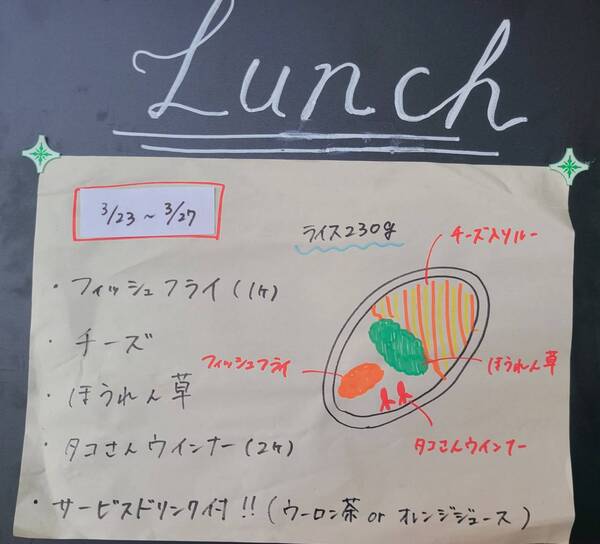 Lunch
3/23 ~ 3/27
ライス230g
チーズ入りルー
・フィッシュフライ(1ヶ)
・チーズ
フィッシュフライ
ほうれん草
・ほうれん草
・タコさんウインナー(2ヶ)
タコさんウインナー
・サービスドリンク付!!(ウーロン茶 or オレンジジュース)